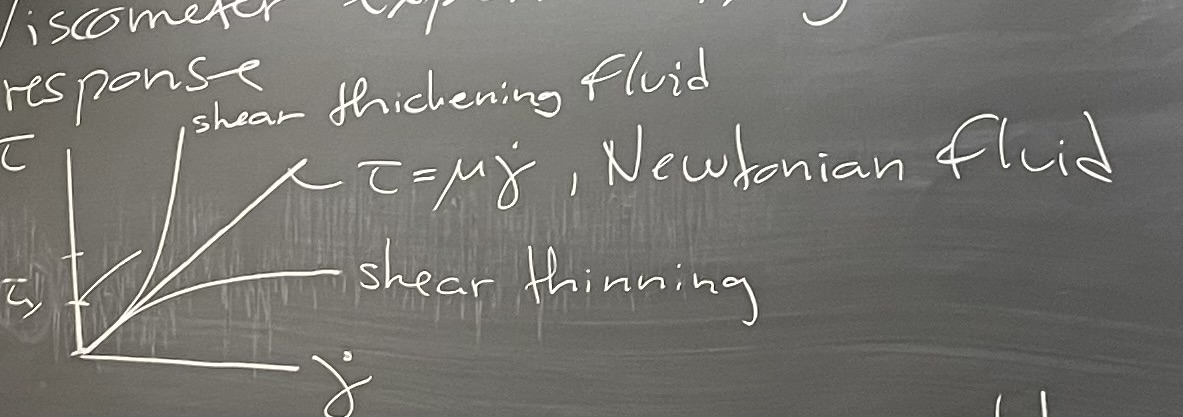 Viscometer
response
shear thickening fluid
τ
τ = μγ̇, Newtonian fluid
shear thinning
τy
γ̇